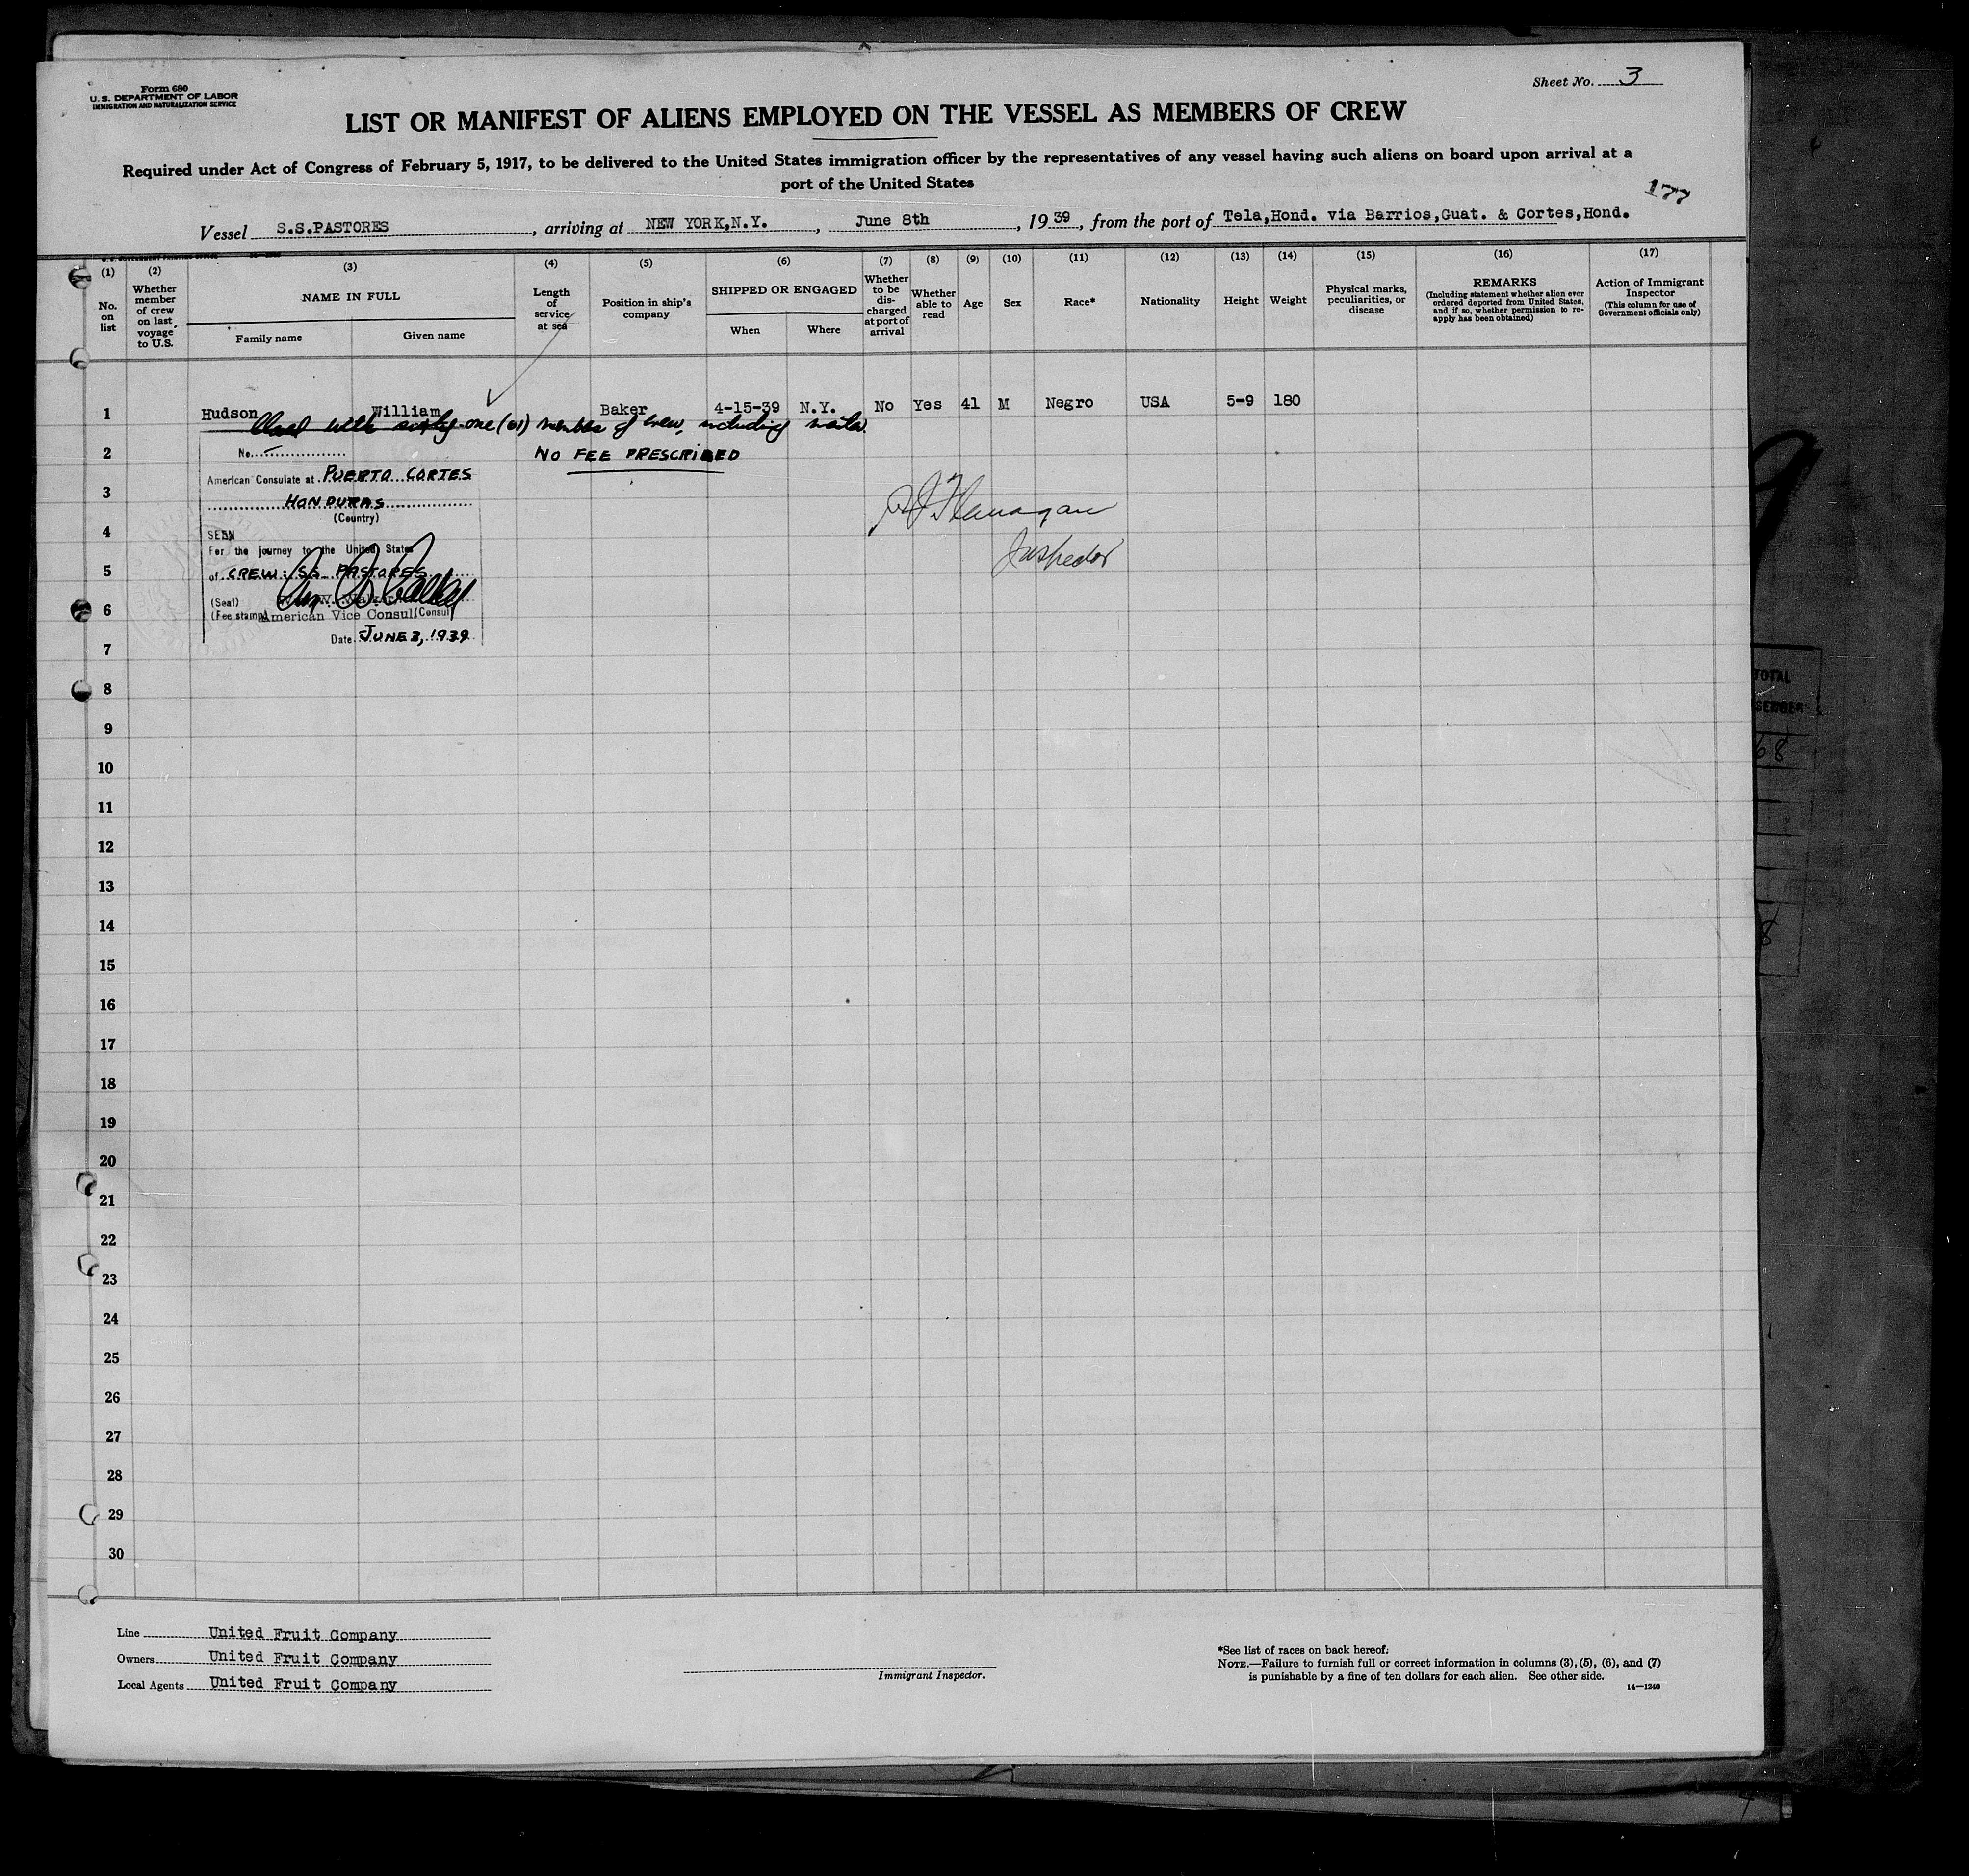 Form 680
U. S. DEPARTMENT OF LABOR
IMMIGRATION AND NATURALIZATION SERVICE
Sheet No. 3
LIST OR MANIFEST OF ALIENS EMPLOYED ON THE VESSEL AS MEMBERS OF CREW
Required under Act of Congress of February 5, 1917, to be delivered to the United States immigration officer by the representatives of any vessel having such aliens on board upon arrival at a
port of the United States
177
Vessel S.S.PASTORES, arriving at NEW YORK,N.Y., June 8th, 1939, from the port of Tela,Hond. via Barrios,Guat. & Cortes,Hond.
(1) No. on list
(2) Whether member of crew on last voyage to U.S.
(3) NAME IN FULL
Family name Given name
(4) Length of service at sea
(5) Position in ship's company
(6) SHIPPED OR ENGAGED
When Where
(7) Whether to be discharged at port of arrival
(8) Whether able to read
(9) Age
(10) Sex
(11) Race*
(12) Nationality
(13) Height
(14) Weight
(15) Physical marks, peculiarities, or disease
(16) REMARKS
(Including statement whether alien ever ordered deported from United States, and if so, whether permission to re-apply has been obtained)
(17) Action of Immigrant Inspector
(This column for use of Government officials only)
1 Hudson William Baker 4-15-39 N.Y. No Yes 41 M Negro USA 5-9 180
with sixty-one (61) members of crew, including master.
2 No.
NO FEE PRESCRIBED
American Consulate at PUERTO CORTES
3 HONDURAS
(Country)
Flanagan
4 SEEN
For the journey to the United States
Inspector
5 of CREW: SS PASTORES
(Seal)
6 (Fee stamp) American Vice Consul (Consul)
Date JUNE 3, 1939
7
8
9
10
11
12
13
14
15
16
17
18
19
20
21
22
23
24
25
26
27
28
29
30
Line United Fruit Company
Owners United Fruit Company
Local Agents United Fruit Company
Immigrant Inspector.
*See list of races on back hereof.
NOTE.—Failure to furnish full or correct information in columns (3), (5), (6), and (7)
is punishable by a fine of ten dollars for each alien. See other side.
14—1240
TOTAL
68